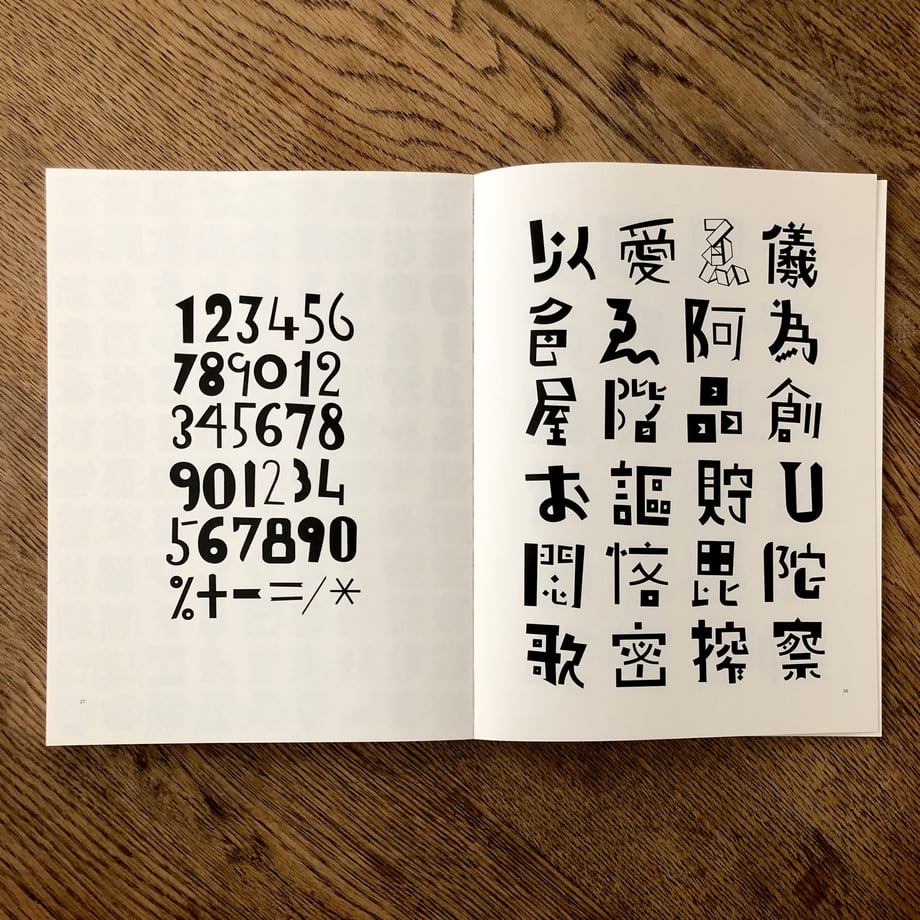 儀為創U陀察
阿品貯毘搾
愛ゑ階謳恪密
以色屋お悶歌
26
123456
789012
345678
901234
567890
%+-=/*
27